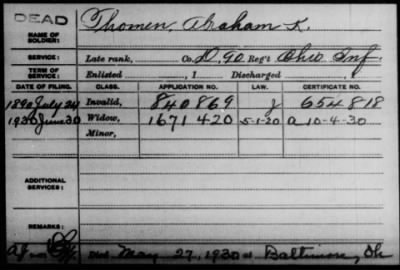 DEAD
NAME OF SOLDIER: Thomen, Abraham K.
SERVICE: Late rank, Co. D, 90 Reg't Ohio Inf.
TERM OF SERVICE: Enlisted , 1 Discharged , 1
DATE OF FILING. CLASS. APPLICATION NO. LAW. CERTIFICATE NO.
1890 July 24 Invalid, 840869 J 654818
1930 June 30 Widow, 1671420 5-1-20 A 10-4-30
Minor,
ADDITIONAL SERVICES:
REMARKS:
Died May 27, 1930 at Baltimore, Oh